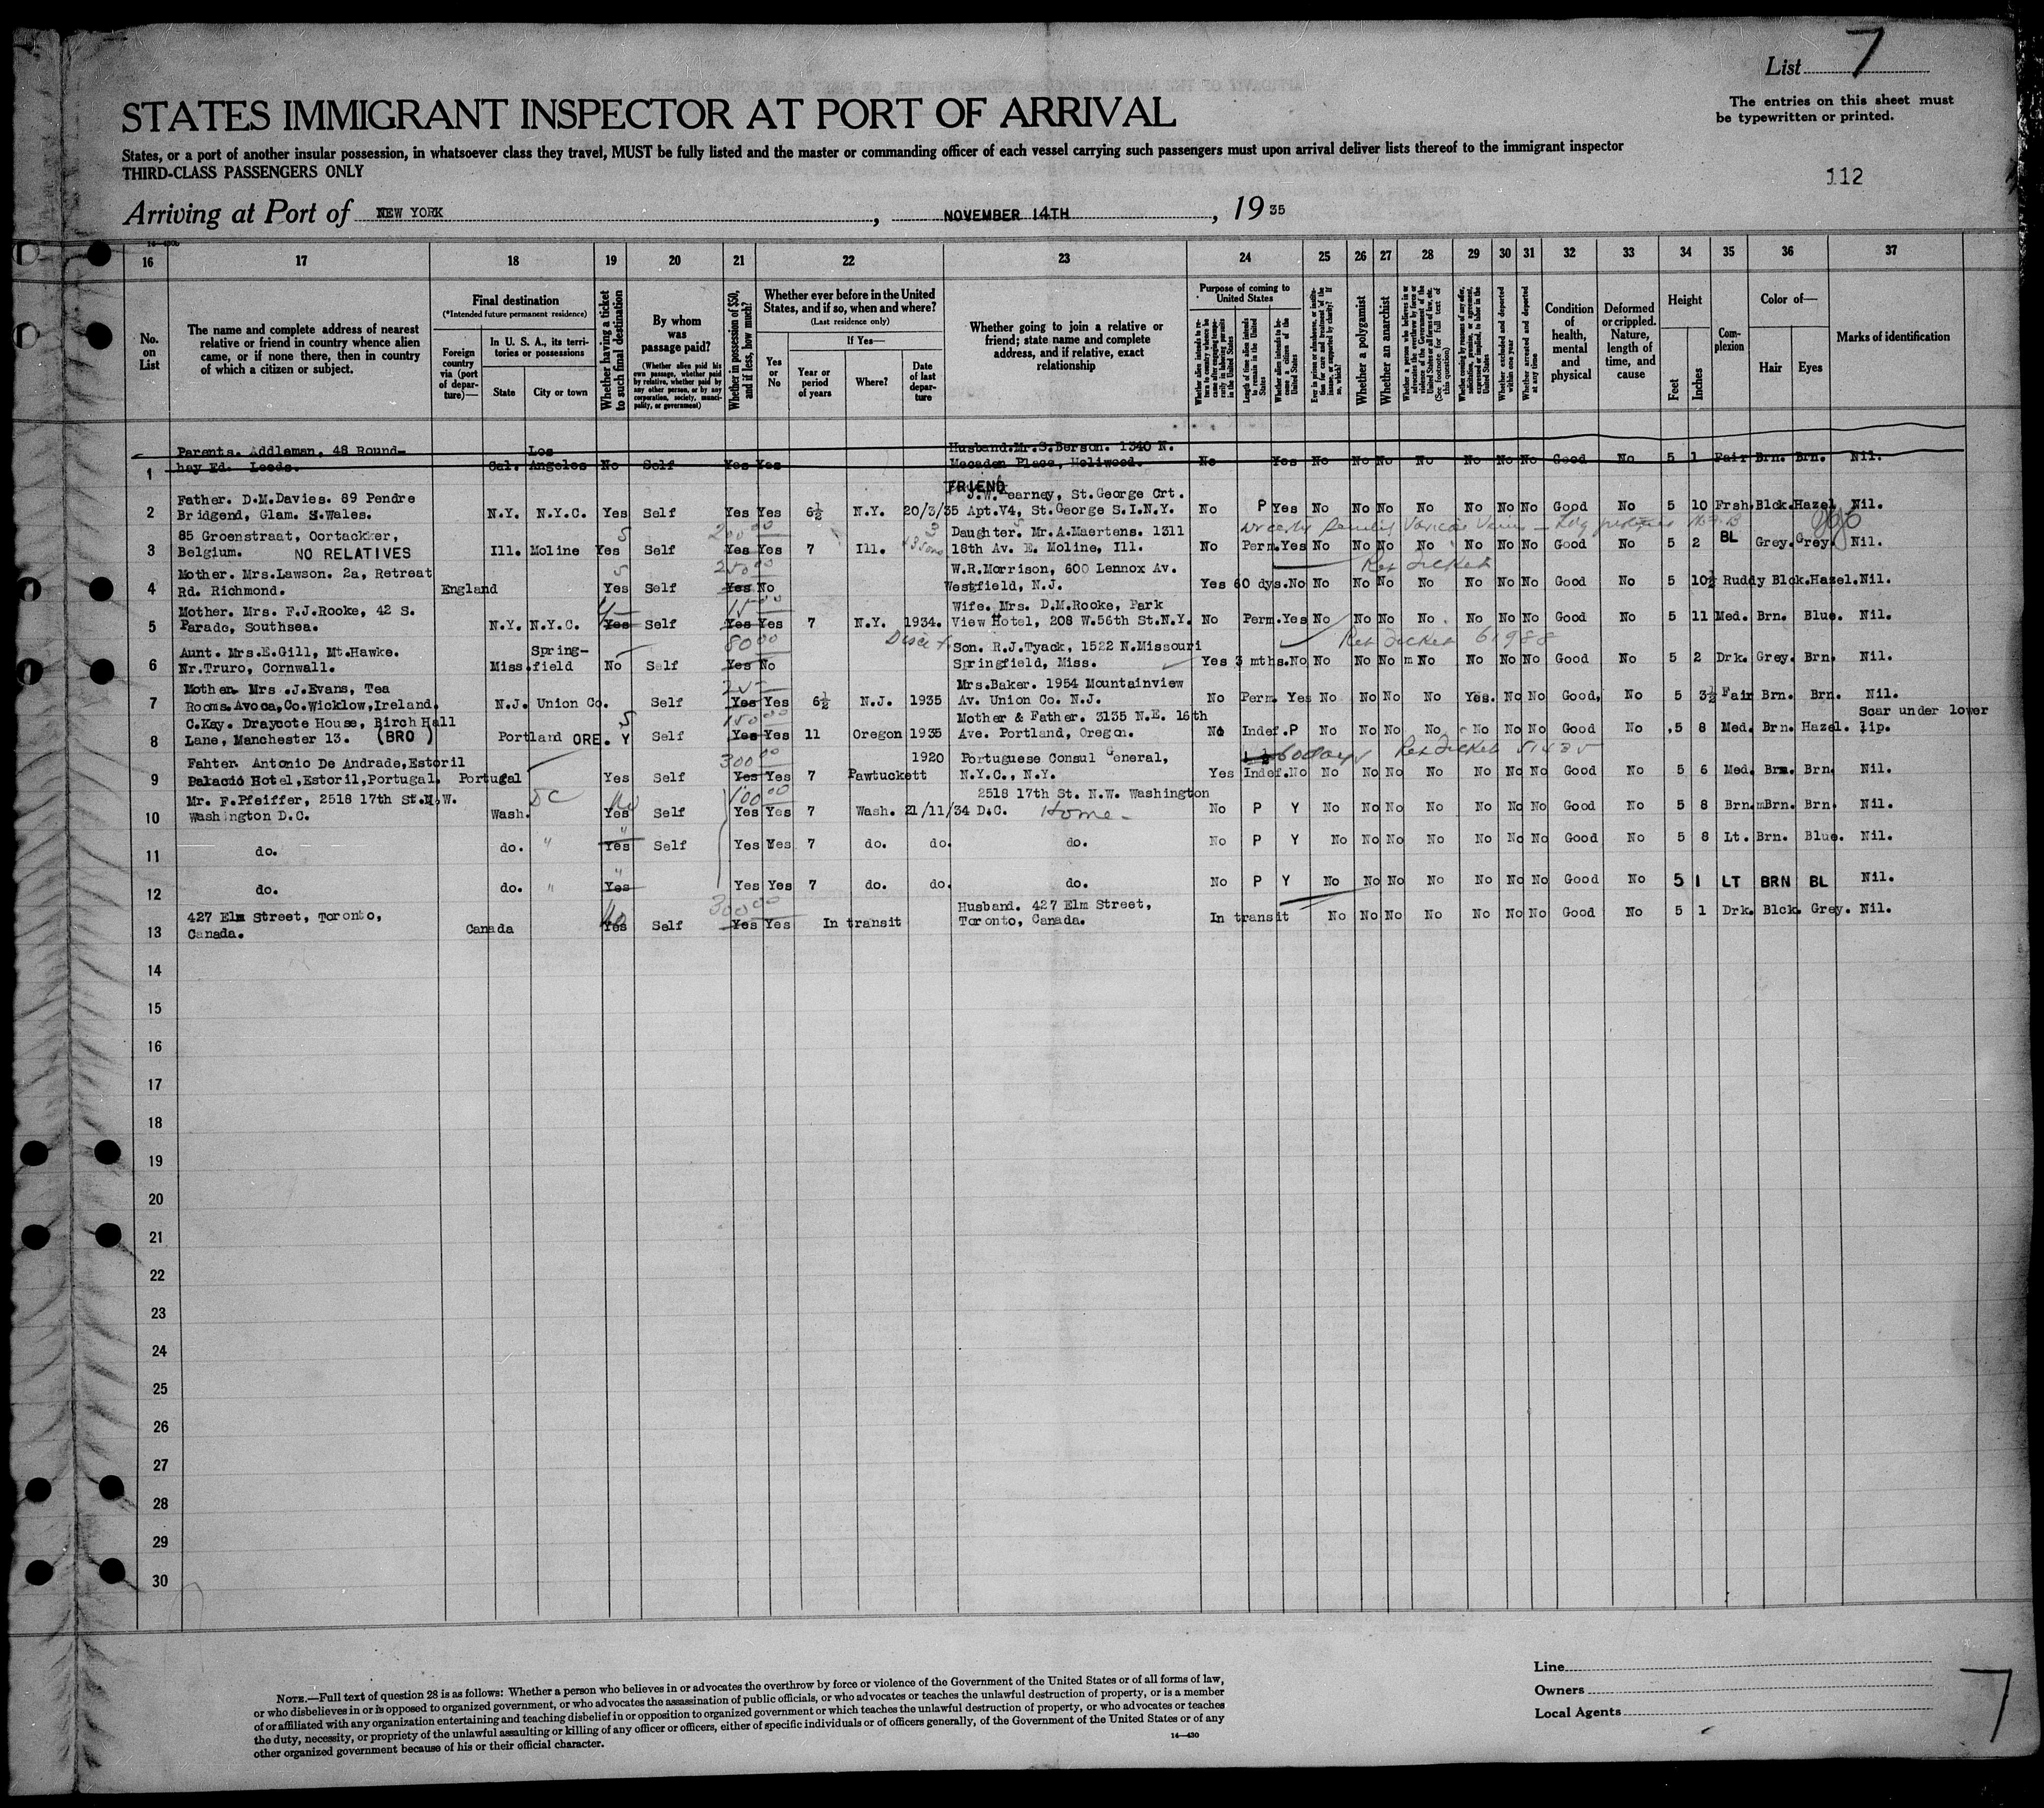 List 7
STATES IMMIGRANT INSPECTOR AT PORT OF ARRIVAL
The entries on this sheet must
be typewritten or printed.
States, or a port of another insular possession, in whatsoever class they travel, MUST be fully listed and the master or commanding officer of each vessel carrying such passengers must upon arrival deliver lists thereof to the immigrant inspector
THIRD-CLASS PASSENGERS ONLY
112
Arriving at Port of NEW YORK, NOVEMBER 14TH, 1935
16 17 18 19 20 21 22 23 24 25 26 27 28 29 30 31 32 33 34 35 36 37
No. on List
The name and complete address of nearest relative or friend in country whence alien came, or if none there, then in country of which a citizen or subject.
Final destination
(*Intended future permanent residence)
Foreign country via (port of departure)—
In U. S. A., its territories or possessions
State
City or town
Whether having a ticket to such final destination
By whom was passage paid?
(Whether alien paid his own passage, whether paid by relative, whether paid by any other person, or by any corporation, society, municipality, or government)
Whether in possession of $50, and if less, how much?
Whether ever before in the United States, and if so, when and where?
(Last residence only)
Yes or No
If Yes—
Year or period of years
Where?
Date of last departure
Whether going to join a relative or friend; state name and complete address, and if relative, exact relationship
Purpose of coming to United States
Length of time alien intends to remain in the United States
Whether a polygamist
Whether an anarchist
(See footnote for full text of this question)
Whether arrested and deported at any time
Condition of health, mental and physical
Deformed or crippled. Nature, length of time, and cause
Height
Feet
Inches
Complexion
Color of—
Hair
Eyes
Marks of identification
Parents. Addleman, 48 Round- Los Husband.Mr.S.Berson. 1340 N.
1 hay Rd. Leeds. Cal. Angeles No Self Yes Yes Mccaden Place, Holiwood. No Yes No No No No No No No Good No 5 1 Fair Brn. Brn. Nil.
FRIEND
Father. D.M.Davies. 89 Pendre J.W.Kearney, St.George Crt.
2 Bridgend, Glam. S.Wales. N.Y. N.Y.C. Yes Self Yes Yes 6½ N.Y. 20/3/35 Apt.V4, St.George S.I.N.Y. No P Yes No No No No No No No Good No 5 10 Frsh. Blck. Hazel Nil.
85 Groenstraat, Oortackker, 5 200 00 3 Daughter. Mr.A.Maertens. 1311
3 Belgium. NO RELATIVES Ill. Moline Yes Self Yes Yes 7 Ill. 18th Av. E. Moline, Ill. No Perm. Yes No No No No No No No Good No 5 2 BL Grey. Grey. Nil.
Mother. Mrs.Lawson. 2a, Retreat 5 250 00 W.R.Morrison, 600 Lennox Av. Ret Ticket
4 Rd. Richmond. England Yes Self Yes No Westfield, N.J. Yes 60 dys. No No No No No No No No Good No 5 10½ Ruddy Blck. Hazel. Nil.
Mother. Mrs. F.J.Rooke, 42 S. 15 00 Wife. Mrs. D.M.Rooke, Park
5 Parade, Southsea. N.Y. N.Y.C. Yes Self Yes Yes 7 N.Y. 1934. View Hotel, 208 W.56th St.N.Y. No Perm. Yes No No No No No No No Good No 5 11 Med. Brn. Blue. Nil.
Aunt. Mrs.E.Gill, Mt.Hawke. Spring- 80 00 Son. R.J.Tyack, 1522 N.Missouri Ret Ticket 61988
6 Nr.Truro, Cornwall. Miss. field No Self Yes No Springfield, Miss. Yes 3 mths. No No No No m No No No No Good No 5 2 Drk. Grey. Brn. Nil.
Mother Mrs .J.Evans, Tea Mrs.Baker. 1954 Mountainview
7 Rooms.Avoca,Co.Wicklow,Ireland. N.J. Union Co. Self Yes Yes 6½ N.J. 1935 Av. Union Co. N.J. No Perm. Yes No No No No Yes. No No Good, No 5 3½ Fair Brn. Brn. Nil.
C.Kay. Draycote House, Birch Hall 5 150 00 Mother & Father. 3135 N.E. 16th Scar under lower
8 Lane, Manchester 13. (BRO ) Portland ORE. Y Self Yes Yes 11 Oregon 1935 Ave. Portland, Oregon. No Indef. P No No No No No No No Good No 5 8 Med. Brn. Hazel. lip.
Fahter. Antonio De Andrade,Estoril 300 00 1920 Portuguese Consul General, 60 days Ret Ticket 51435
9 Palacio Hotel,Estoril,Portugal. Portugal Yes Self Yes Yes 7 Pawtuckett N.Y.C., N.Y. Yes Indef. No No No No No No No No Good No 5 6 Med. Brn. Brn. Nil.
Mr. F.Pfeiffer, 2518 17th St.N.W. DC No 100 00 2518 17th St. N.W. Washington
10 Washington D.C. Wash. Yes Self Yes Yes 7 Wash. 21/11/34 D.C. Home - No P Y No No No No No No No Good No 5 8 Brn.mBrn. Brn. Nil.
11 do. do. " Yes Self Yes Yes 7 do. do. do. No P Y No No No No No No No Good No 5 8 Lt. Brn. Blue. Nil.
12 do. do. " Yes Yes Yes 7 do. do. do. No P Y No No No No No No No Good No 5 1 LT BRN BL Nil.
427 Elm Street, Toronto, No 300 00 Husband. 427 Elm Street,
13 Canada. Canada Yes Self Yes Yes In transit Toronto, Canada. In transit No No No No No No No Good No 5 1 Drk. Blck. Grey. Nil.
14
15
16
17
18
19
20
21
22
23
24
25
26
27
28
29
30
NOTE.—Full text of question 28 is as follows: Whether a person who believes in or advocates the overthrow by force or violence of the Government of the United States or of all forms of law,
or who disbelieves in or is opposed to organized government, or who advocates the assassination of public officials, or who advocates or teaches the unlawful destruction of property, or is a member
of or affiliated with any organization entertaining and teaching disbelief in or opposition to organized government or which teaches the unlawful destruction of property, or who advocates or teaches
the duty, necessity, or propriety of the unlawful assaulting or killing of any officer or officers, either of specific individuals or of officers generally, of the Government of the United States or of any
other organized government because of his or their official character.
14—430
Line
Owners
Local Agents
7